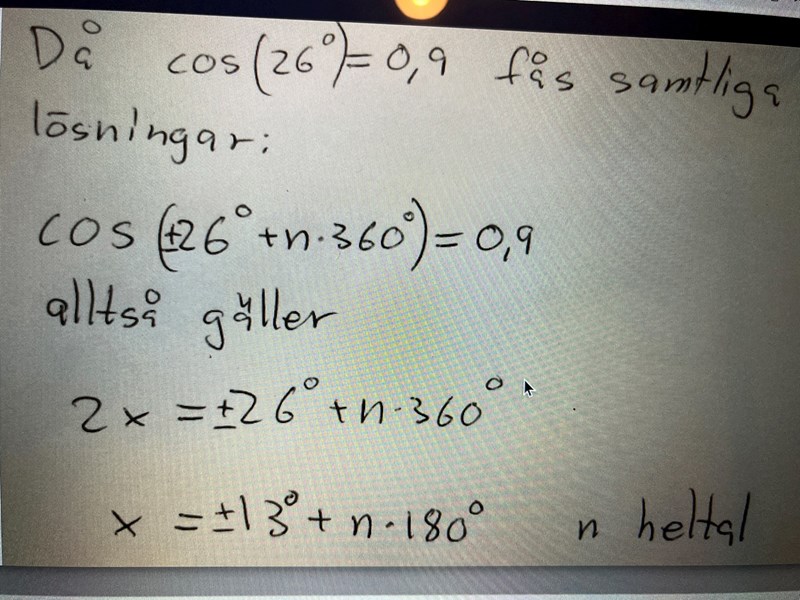 Då cos(26°)=0,9 fås samtliga
lösningar:
cos(±26°+n·360°)=0,9
alltså gäller
2x =±26°+n·360°
x =±13°+ n·180° n heltal